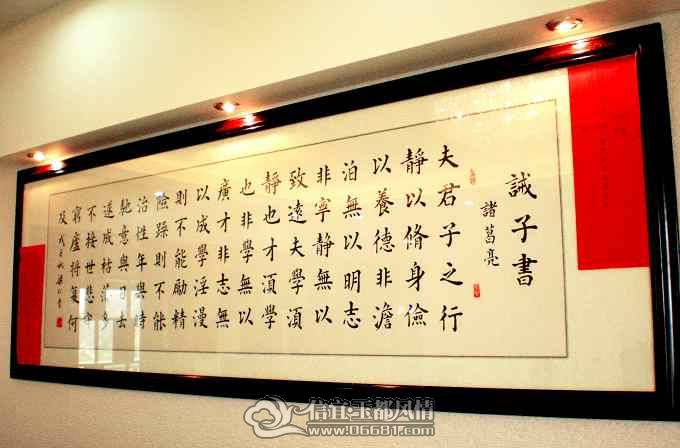 誡子書
諸葛亮
夫君子之行
靜以脩身儉
以養德非澹
泊無以明志
非寧靜無以
致遠夫學湏
靜也才湏學
也非學無以
廣才非志無
以成學淫漫
則不能勵精
險躁則不能
治性年與時
馳意與日去
遂成枯落多
不接世悲守
窮廬將復何
及
信宜·玉都风情
www.06681.com